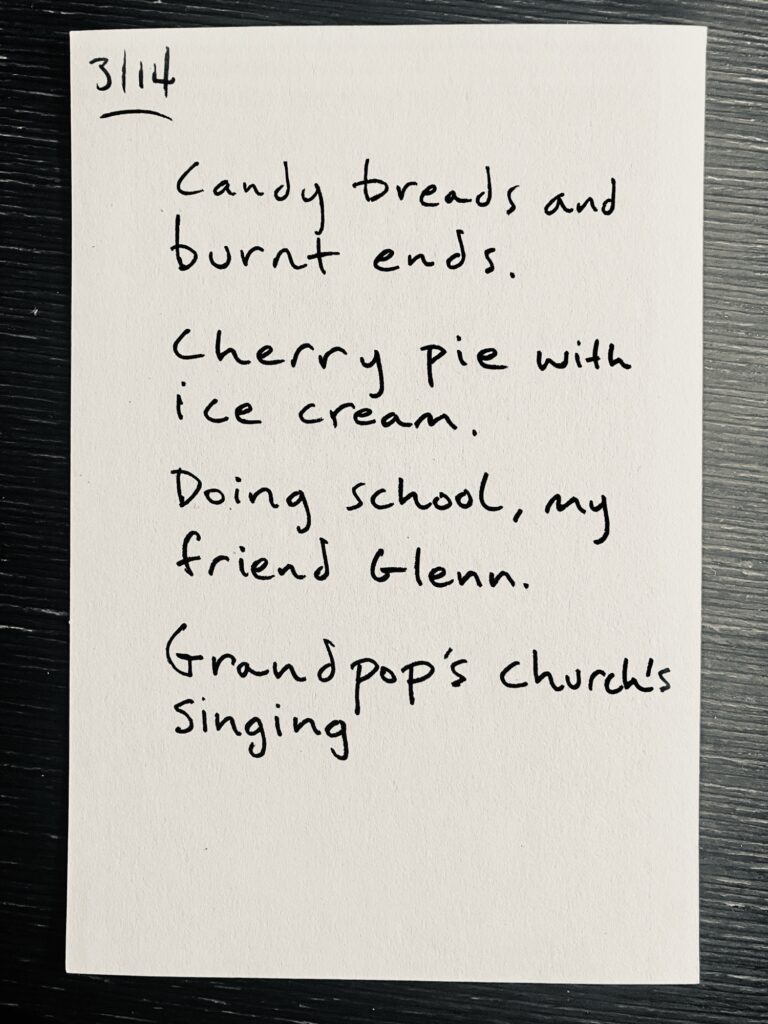 3/14
Candy breads and
burnt ends.
Cherry pie with
ice cream.
Doing school, my
friend Glenn.
Grandpop's church's
singing